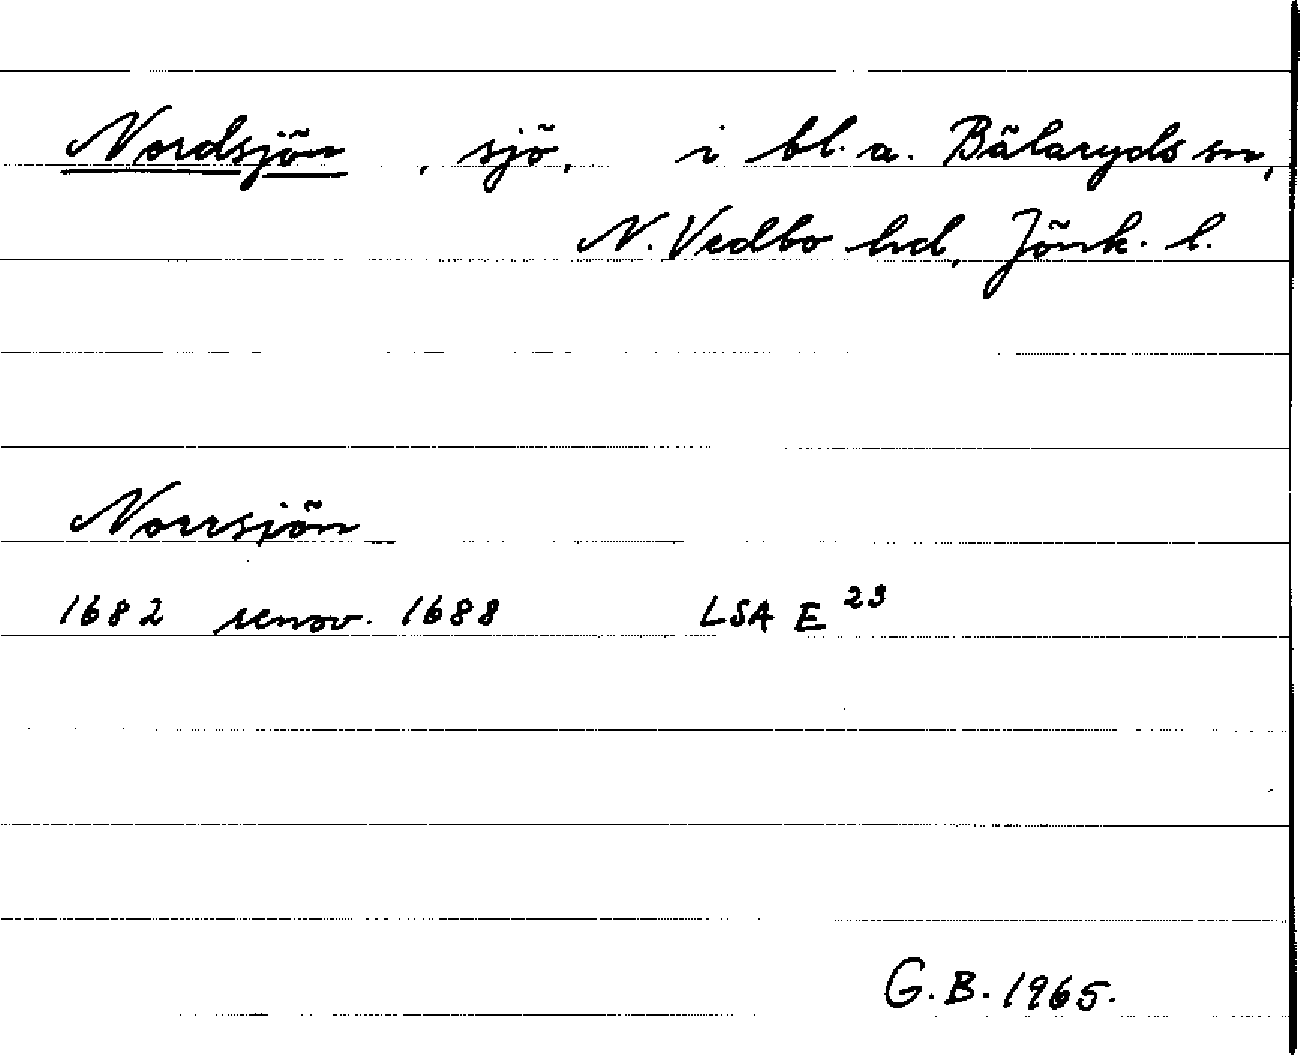 Nordsjön, sjö, i bl. a. Bälaryds sn,
N. Vedbo hd, Jönk. l.
Norrsjön
1682 renov. 1688 LSA E 23
G. B. 1965.